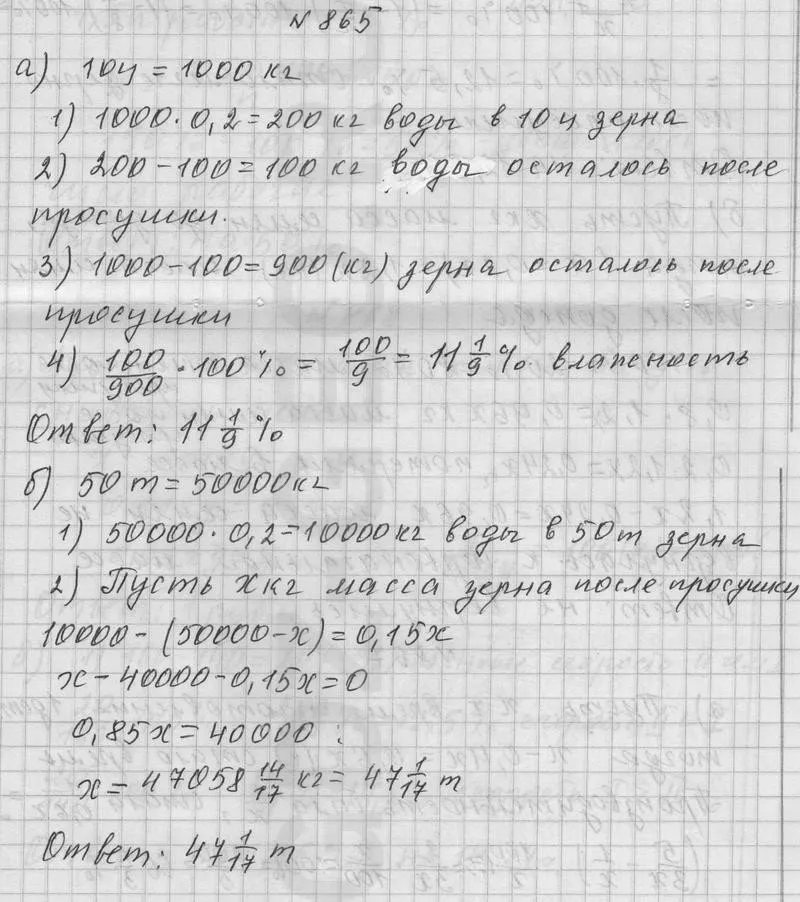 № 865
а) 10ц = 1000 кг
1) 1000 · 0,2 = 200 кг воды в 10 ц зерна
2) 200 - 100 = 100 кг воды осталось после
просушки.
3) 1000 - 100 = 900 (кг) зерна осталось после
просушки
4) 100/900 · 100 % = 100/9 = 11 1/9 % влажность
Ответ: 11 1/9 %
б) 50 т = 50000 кг
1) 50000 · 0,2 = 10000 кг воды в 50 т зерна
2) Пусть x кг масса зерна после просушки
10000 - (50000 - x) = 0,15x
x - 40000 - 0,15x = 0
0,85x = 40000
x = 47058 14/17 кг = 47 1/17 т
Ответ: 47 1/17 т